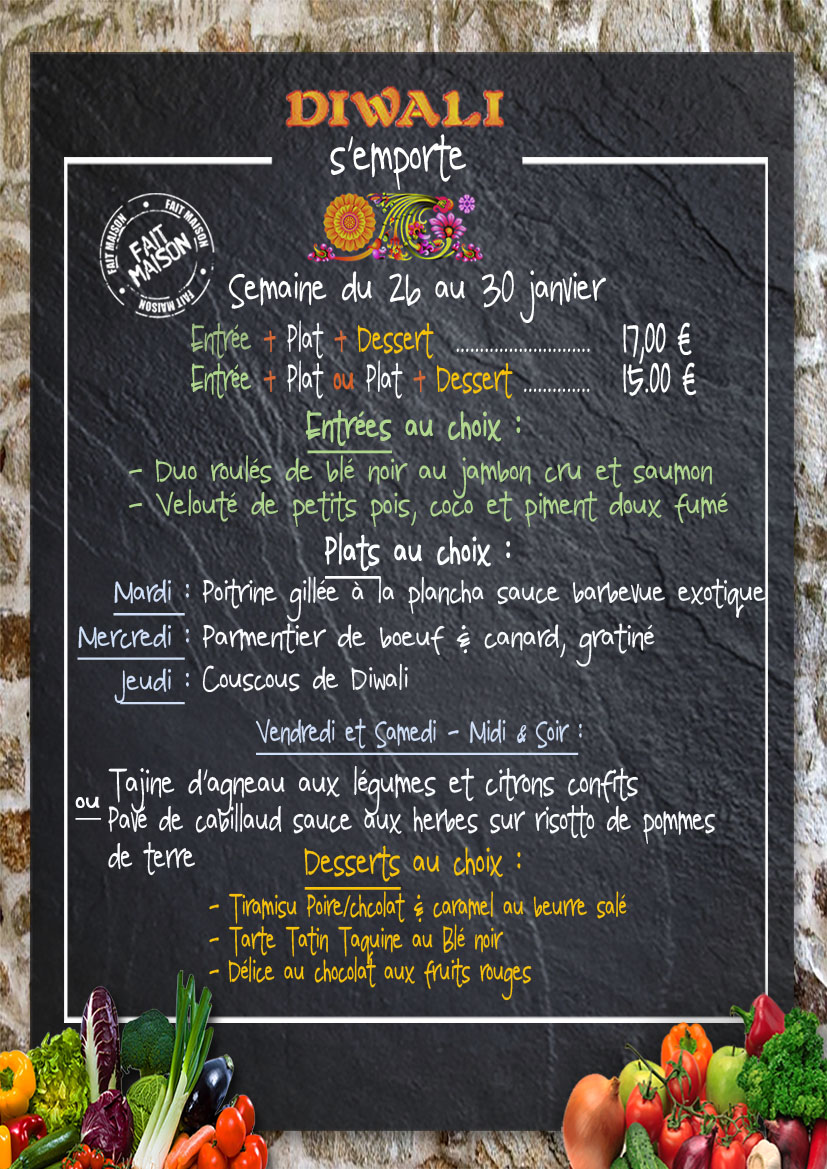 DIWALI
s'emporte
FAIT MAISON
FAIT MAISON
FAIT MAISON
FAIT MAISON
Semaine du 26 au 30 janvier
Entrée + Plat + Dessert ........................... 17,00 €
Entrée + Plat ou Plat + Dessert ............. 15.00 €
Entrées au choix :
- Duo roulés de blé noir au jambon cru et saumon
- Velouté de petits pois, coco et piment doux fumé
Plats au choix :
Mardi : Poitrine gillée à la plancha sauce barbevue exotique
Mercredi : Parmentier de boeuf & canard, gratiné
Jeudi : Couscous de Diwali
Vendredi et Samedi - Midi & Soir :
Tajine d'agneau aux légumes et citrons confits
ou
Pavé de cabillaud sauce aux herbes sur risotto de pommes
de terre
Desserts au choix :
- Tiramisu Poire/chcolat & caramel au beurre salé
- Tarte Tatin Taquine au Blé noir
- Délice au chocolat aux fruits rouges